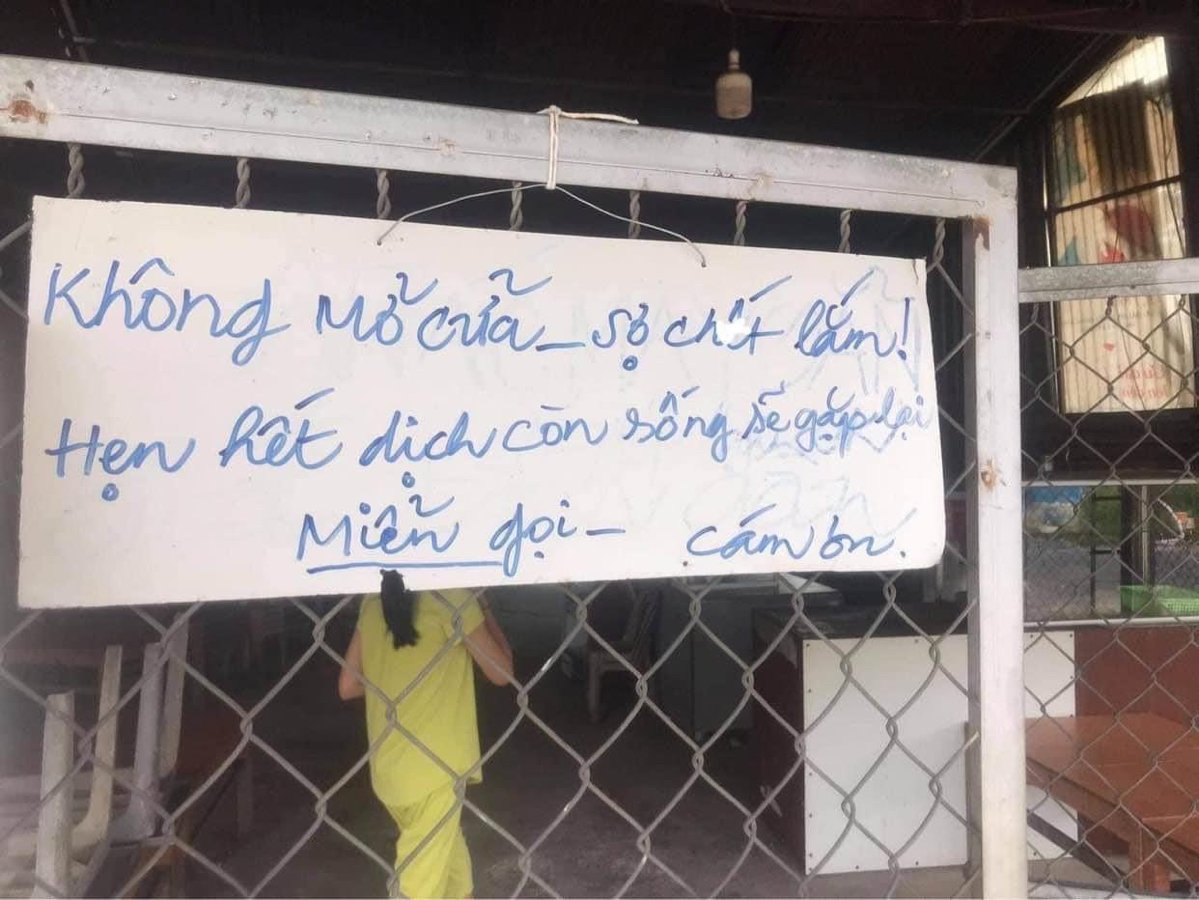 Không mở cửa - sợ chết lắm!
Hẹn hết dịch còn sống sẽ gặp lại
Miễn gọi - cám ơn.